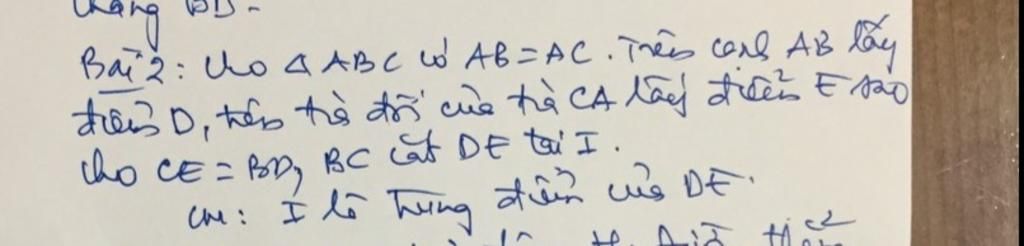 thẳng BD.
Bài 2: Cho Δ ABC có AB = AC. Trên cạnh AB lấy
điểm D, trên tia đối của tia CA lấy điểm E sao
cho CE = BD, BC cắt DE tại I.
CM: I là trung điểm của DE.